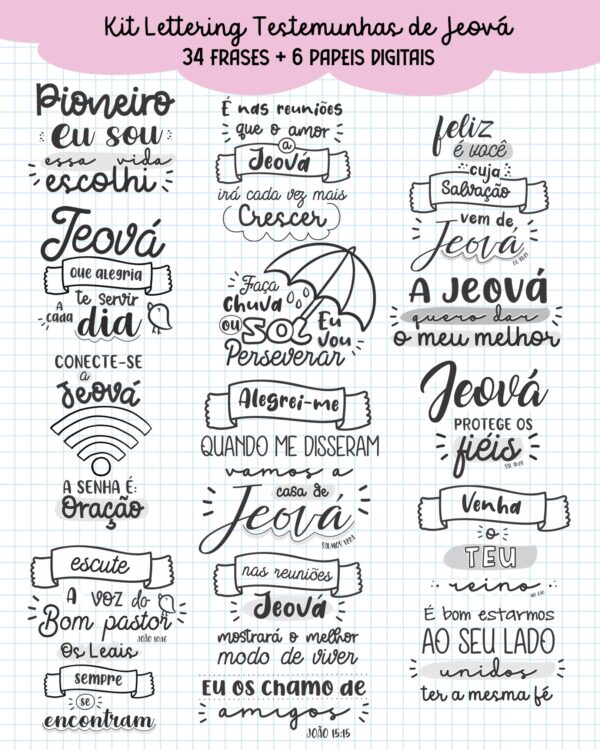 Kit Lettering Testemunhas de Jeová
34 FRASES + 6 PAPEIS DIGITAIS
Pioneiro
eu sou
essa vida
escolhi
Jeová
que alegria
te servir
A cada
dia
CONECTE-SE
a
Jeová
A SENHA É:
Oração
escute
A VOZ do
Bom pastor
JOÃO 10:16
Os Leais
sempre
se
encontram
É nas reuniões
que o amor
a
Jeová
irá cada vez mais
Crescer
Faça
chuva
ou SOL Eu
vou
Perseverar
Alegrei-me
QUANDO ME DISSERAM
vamos a
casa de
Jeová
nas reuniões
Jeová
mostrará o melhor
modo de viver
EU OS CHAMO DE
amigos
JOÃO 15:15
feliz
é você
cuja
Salvação
vem de
Jeová
A JEOVÁ
quero dar
o meu melhor
Jeová
PROTEGE OS
fiéis
Venha
o
TEU
reino
É bom estarmos
AO SEU LADO
unidos
ter a mesma fé